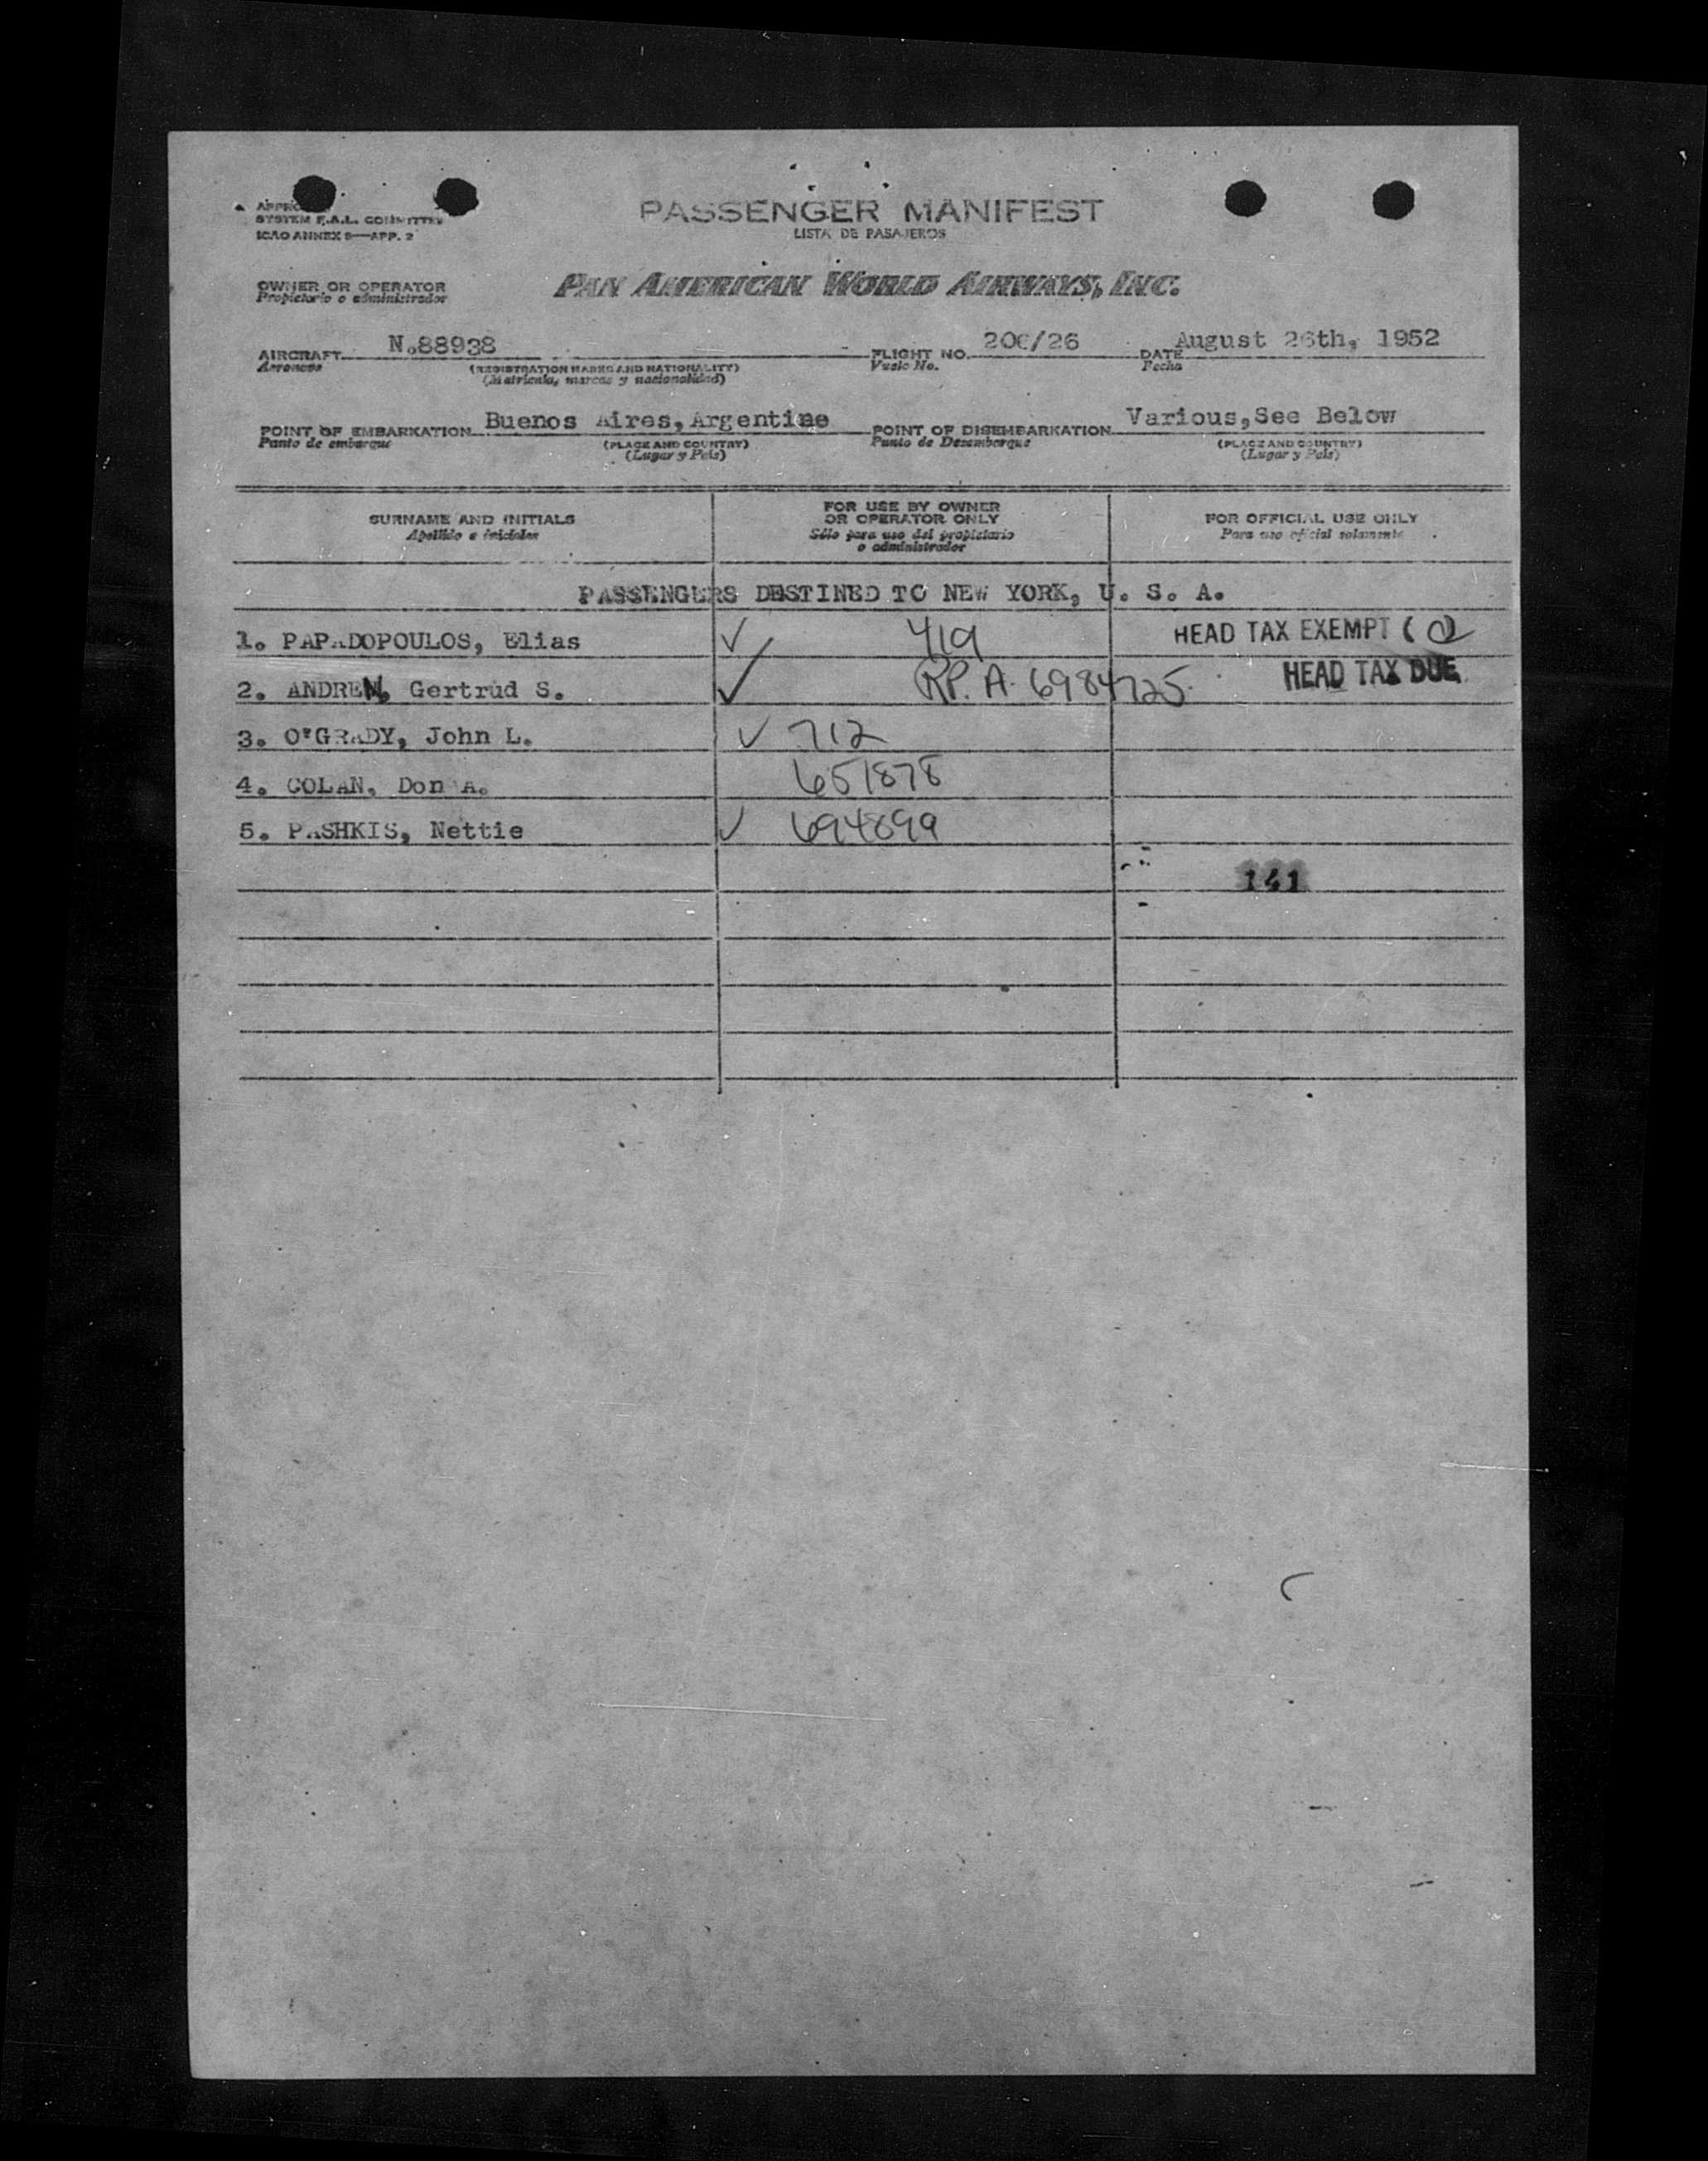 PASSENGER MANIFEST
LISTA DE PASAJEROS
SYSTEM F.A.L. COMMITTEE
ICAO ANNEX 9—APP. 2
OWNER OR OPERATOR
Propietario o administrador
PAN AMERICAN WORLD AIRWAYS, INC.
AIRCRAFT N.88938 FLIGHT NO. 206/26 DATE August 26th, 1952
Aeronave (REGISTRATION MARKS AND NATIONALITY) Vuelo No. Fecha
(Matrícula, marcas y nacionalidad)
POINT OF EMBARKATION Buenos Aires, Argentine POINT OF DISEMBARKATION Various, See Below
Punto de embarque (PLACE AND COUNTRY) Punto de Desembarque (PLACE AND COUNTRY)
(Lugar y País) (Lugar y País)
SURNAME AND INITIALS
Apellido e iniciales
FOR USE BY OWNER
OR OPERATOR ONLY
Sólo para uso del propietario
o administrador
FOR OFFICIAL USE ONLY
Para uso oficial solamente
PASSENGERS DESTINED TO NEW YORK, U. S. A.
1. PAPADOPOULOS, Elias ✓ 419 HEAD TAX EXEMPT
2. ANDREN, Gertrud S. ✓ RP. A. 6984725 HEAD TAX DUE
3. O'GRADY, John L. ✓ 712
4. COLAN, Don A. 651878
5. PASHKIS, Nettie ✓ 694899
141